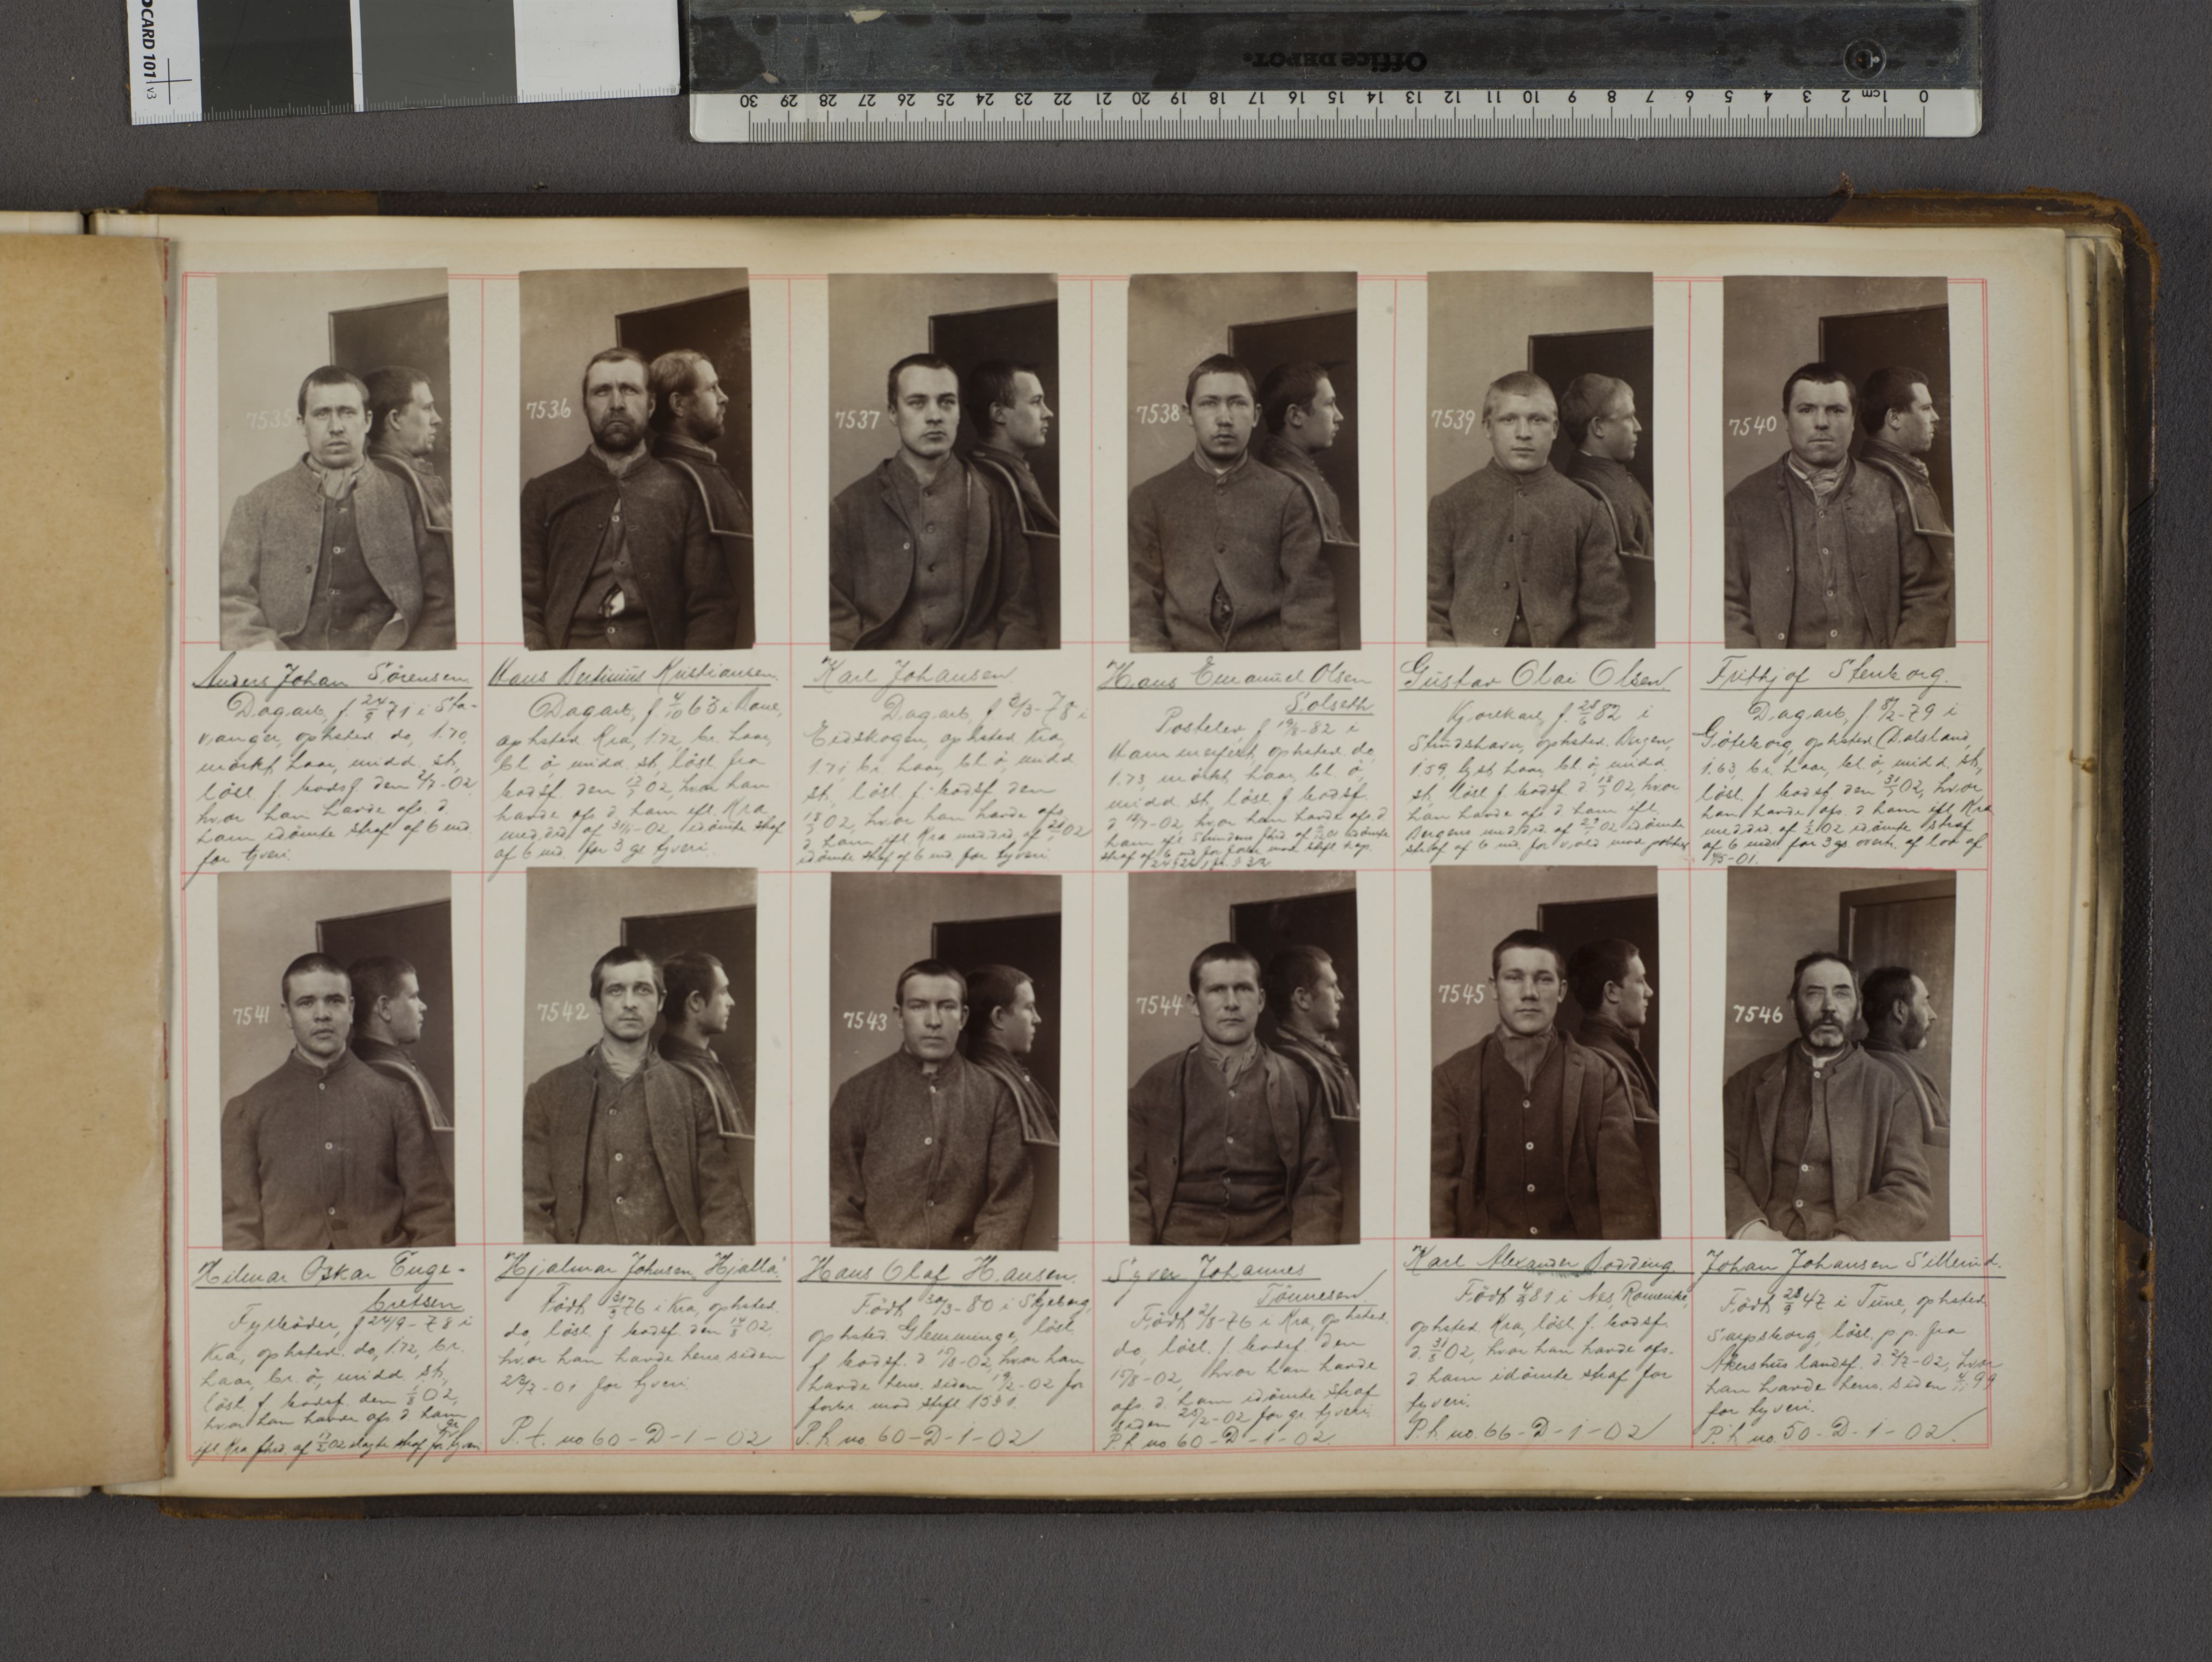 OCARD 101 v3
Office DEPOT.
0 1 cm 2 3 4 5 6 7 8 9 10 11 12 13 14 15 16 17 18 19 20 21 22 23 24 25 26 27 28 29 30
7535
7536
7537
7538
7539
7540
Anders Johan Sörensen
Dagarb, f 24/9 71 i Sta-
vanger, ophsted do, 1.70,
mörkt haar, midd. st,
löst f bodsf den
hvor han havde afs. d
ham idömte straf af 6 md.
for tyveri.
Hans Bertinius Kristiansen
Dagarb, f 4/10 63 i
ophsted Kra, 1.72, br. haar,
bl ö, midd st, löst fra
bodsf. den 02, hvor han
havde afs d ham efl. Kra
meddrd. af 31/1-02 idömte straf
af 6 md for 3 gs tyveri.
Karl Johansen
Dagarb, f 2/3-78 i
Eidskogen, ophsted Kra,
1.71 br haar, bl ö, midd
st, löst f. bodsf den
02, hvor han havde afs
d ham efl Kra meddrd af 02
idömte straf af 6 md for tyveri.
Hans Emanuel Olsen
Solseth
Postelev, f 19/8-82 i
Hammerfest, ophsted do,
1.73, mörkt haar, bl. ö,
midd st, löst f bodsf
d -02, hvor han havde afs. d
ham efl idömte
straf af 6 md for forbr mod stfl kap
Gustav Olai Olsen
Kjörekarl, f. 82 i
ophsted. Bergen,
1.59, lyst haar, bl ö, midd
st, löst f bodsf d 18 02, hvor
han havde afs d ham efl
Bergens meddrd. af 02 idömte
straf af 6 md. for vold mod politiet
Frithjof Stenborg.
Dagarb, f 8/2-79 i
Göteborg, ophsted (Dalsland,
1.63, br. haar, bl. ö, midd. st,
löst. f bodsf den 02, hvor
han havde afs. d ham efl Kra
meddrd. af 02 idömte straf
af 6 mdr for 3 gs overtr. af lov af
-01.
7541
7542
7543
7544
7545
7546
Hilmar Oskar Enge-
bretsen
Fyrböder, f 24/9-78 i
Kra, ophsted. do, 1.72, br.
haar, br. ö, midd st,
löst f bodsf den 02,
hvor han havde afs d ham
efl Kra af 02 straf for tyveri
Hjalmar Johnsen Hjallå
Födt 76 i Kra, ophsted.
do, löst f bodsf. den 14 02
hvor han havde hens siden
-01 for tyveri.
P. t. no 60-D-1-02
Hans Olaf Hansen.
Födt 30/3-80 i Skjeberg,
ophsted Glemminge, löst
f bodsf. d -02, hvor han
havde hens. siden -02 for
forbr mod stfl
P. h. no 60-D-1-02
Syver Johannes
Tönnesen
Födt 2/8-76 i Kra, ophsted.
do, löst. f bodsf den
-02, hvor han havde
afs. d. ham idömte straf
siden -02 for gr tyveri.
P. h. no 60-D-1-02
Karl Alexander Bodding
Födt 81 i Nes Romerike,
ophsted Kra, löst f. bodsf
d. 31 02, hvor han havde afs.
d ham idömte straf for
tyveri.
P. h. no. 66-D-1-02
Johan Johansen Sillerud.
Födt 28 47 i Tune, ophsted
Sarpsborg, löst p p. fra
Akershus landsf. d. -02, hvor
han havde hens. siden 99
for tyveri.
P. h. no. 50-D-1-02.